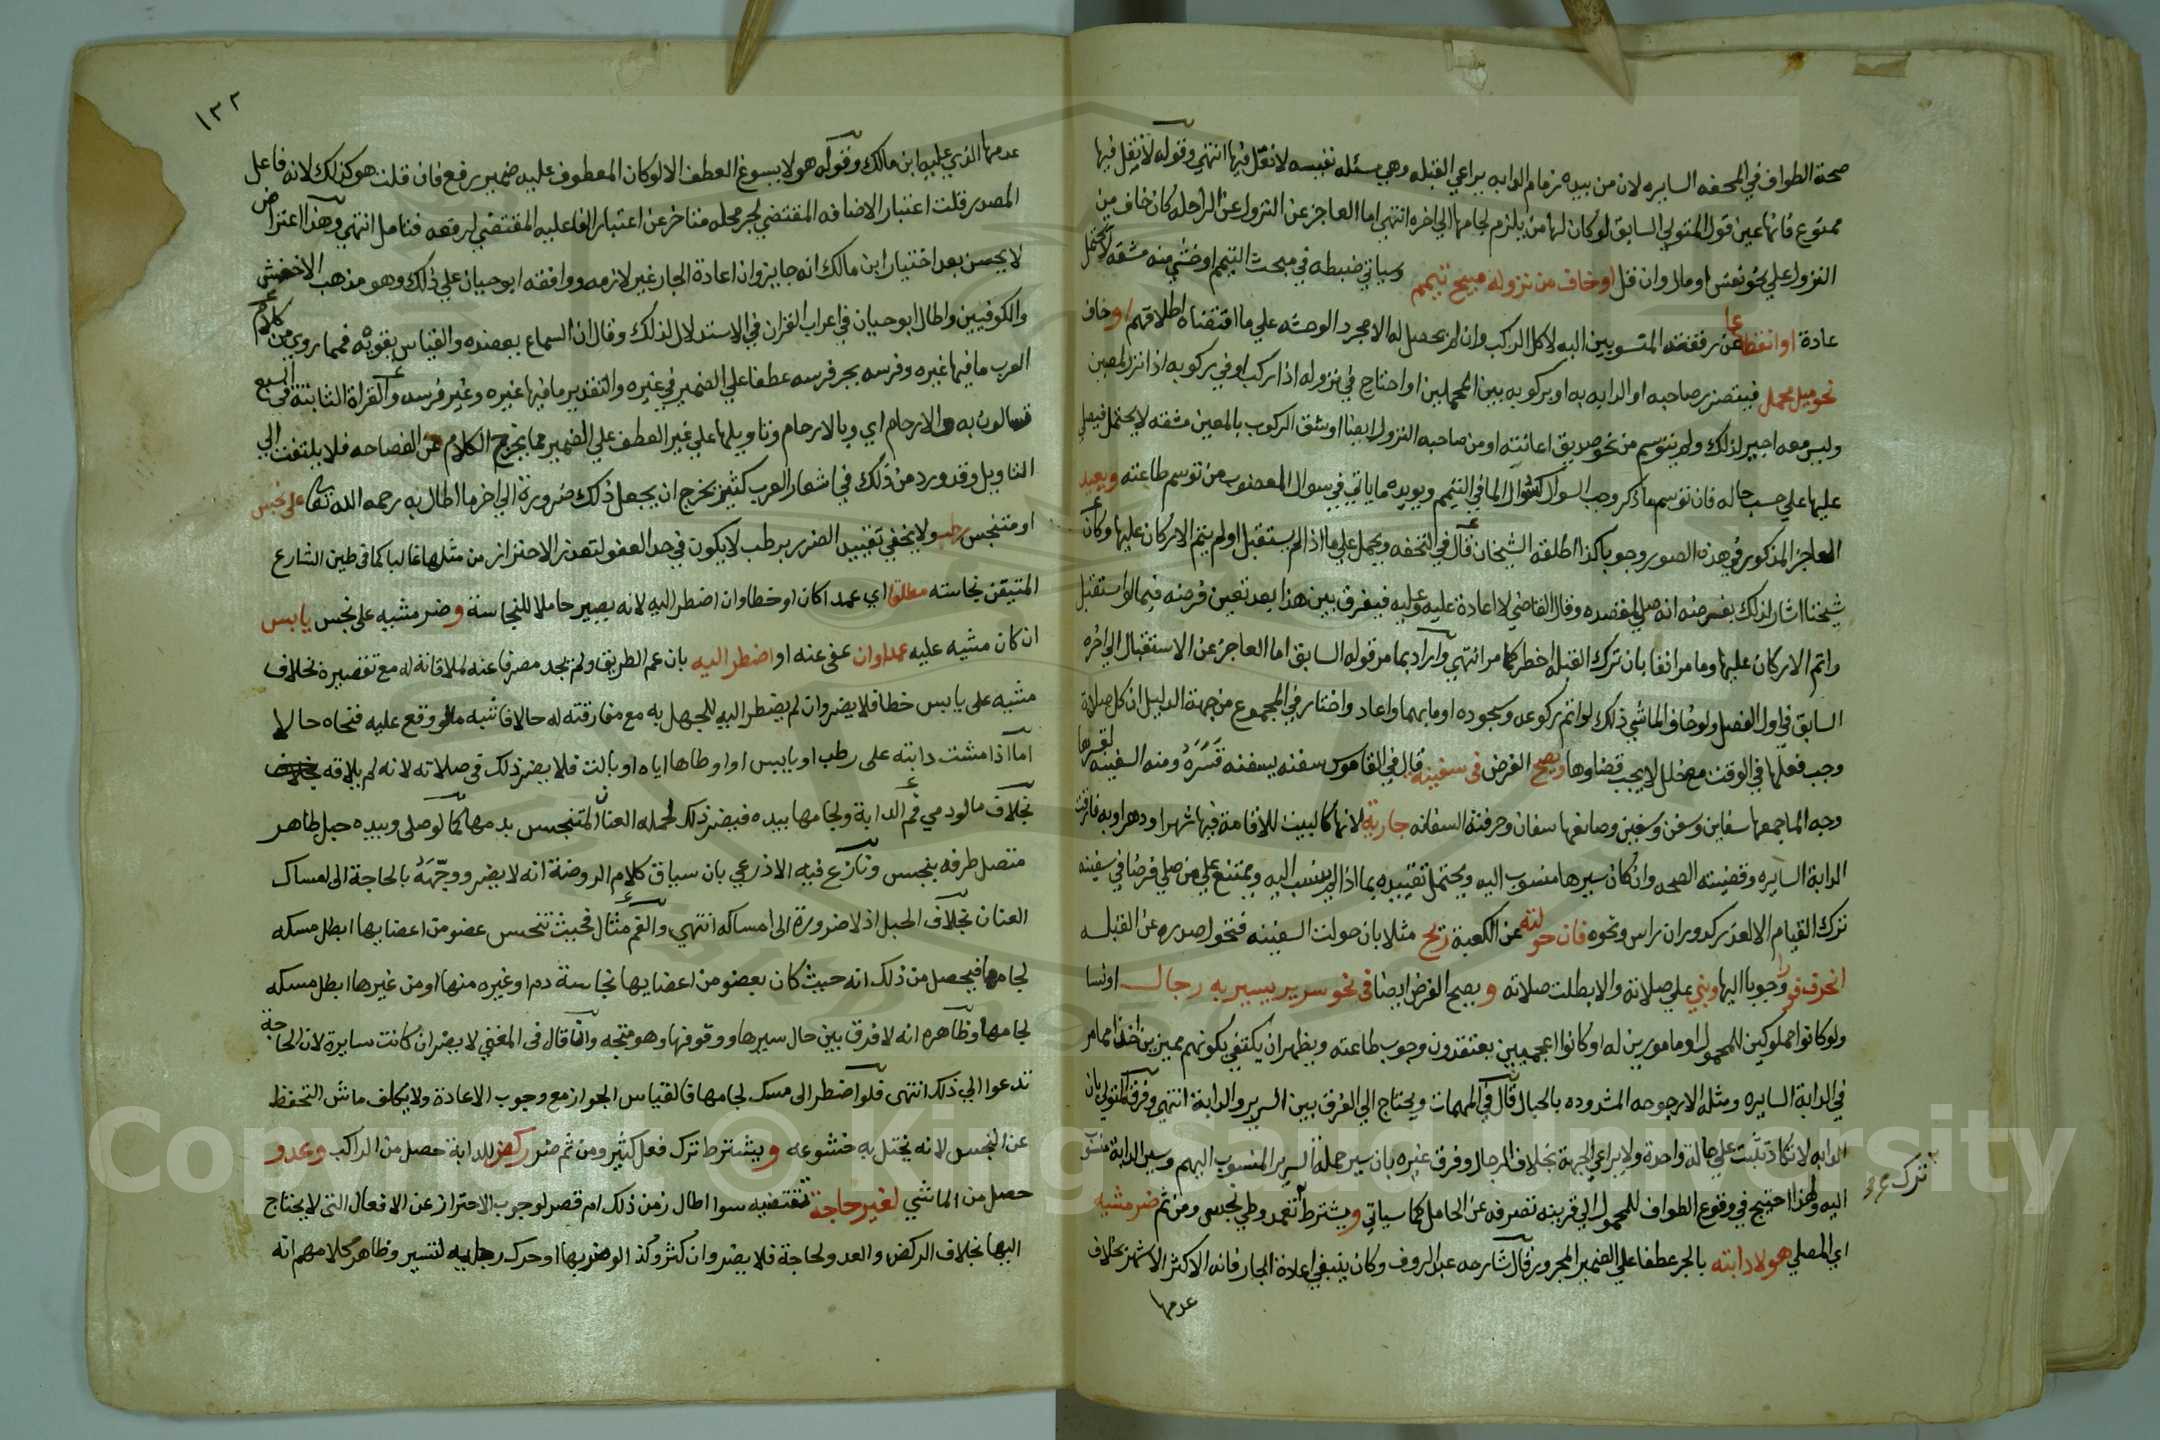 صحة الطواف في المحفه السايره لان من بيده زمام الدابه يراعي القبله وهي مسئله نفيسه لا نقل فيها انتهي وقوله لا نقل فيها
ممنوع فانها عين قول المتولي السابق لو كان لها من يلزم لجامها الي اخره انتهي اما العاجز عن النزول عن الراحله كان خاف من
النزول علي نحو نفس او مال وان قل او خاف من نزوله مبيح تيمم وسياتي ضبطه في مبحث التيمم او خشي منه مشقه لا تحتمل
عادة او انقطاعا عن رفقته المنسوبين اليه لا كل الركب وان لم يحصل له الا مجرد الوحشه علي ما اقتضاه اطلاقهم او خاف
نحو ميل محمل فيتضرر صاحبه او الدابه به او بركوبه بين المحملين او احتاج في نزوله اذا ركب او في ركوبه اذا نزل لمعين
وليس معه اجير لذلك ولم يتوسم من نحو صديق اعانته او من صاحبه النزول ايضا او شق الركوب بالمعين مشقه لا تحتمل فيصلي
عليها علي حسب حاله فان توسم ما ذكر وجب السوال كسوال الما في التيمم ويويده ما ياتي في سوال المعضوب من توسم طاعته ويعيد
العاجز المذكور في هذه الصور وجوبا كذا اطلقه الشيخان قال في التحفه ويحمل علي ما اذا لم يستقبل او لم يتم الاركان عليها وكان
شيخنا اشار لذلك بفرضه انه صلي لمقصده وقال القاضي لا اعادة عليه وعليه فيفرق بين هذا بعد تعين فرضه فيما لو استقبل
واتم الاركان عليها وما مر انفا بان ترك القبله اخطر كما مر انتهي واراد بما مر قوله السابق اما العاجز عن الاستقبال الي اخره
السابق في اول الفصل ولو خاف الماشي ذلك لو اتم ركوعه وسجوده اوما بهما واعاد واختار في المجموع من جهة الدليل ان كل صلاة
وجب فعلها في الوقت مع خلل لا يجب قضاوها ويصح الفرض في سفينه قال في القاموس سفنه يسفنه قشره ومنه السفينه لقشرها
وجه الما جمعها سفاين وسفن وسفين وصانعها سفان وحرفته السفانه جاريه لانها كالبيت للاقامة فيها شهرا ودهرا وبه فارقت
الدابة السايره وقضيته الصحه وان كان سيرها منسوب اليه ويحتمل تقييده بما اذا لم ينسب اليه ويمتنع علي من صلي فرضا في سفينه
ترك القيام الا لعذر كدوران راس ونحوه فان حولته عن الكعبة ريح مثلا بان حولت السفينه فتحول صدره عن القبله
انحرف فورا وجوبا اليها وبني علي صلاته والا بطلت صلاته و يصح الفرض ايضا في نحو سرير يسير به رجال او نسا
ولو كانوا مملوكين للمحمول او مامورين له او كانوا اعجميين يعتقدون وجوب طاعته ويظهر ان يكتفي بكونهم مميزين اخذا مما مر
في الدابة السايره ومثله الارجوحه المشدوده بالحبال قال في المهمات ويحتاج الي الفرق بين السرير والدابة انتهي وفرق المتولي بان
الدابه لا تكاد تثبت علي حالة واحدة ولا يراعي الجهة بخلاف الرجال وفرق غيره بان سير حملة السرير المنسوب اليهم وسير الدابة منسوب
اليه ولهذا احتيج في وقوع الطواف للمحمول الي قرينه تصرفه عن الحامل كما سياتي ويشترط ترك تعمد وطي نجس ومن ثم ضر مشيه
اي المصلي هو لا دابته بالجر عطفا علي الضمير المجرور قال شارحه عبد الروف وكان ينبغي اعادة الجار فانه الاكثر الاشهر بخلاف
عدمها
١٣٢
عدمها الذي عليه ابن مالك وقوله هو لا يسوغ العطف الا لو كان المعطوف عليه ضمير رفع فان قلت هو كذلك لانه فاعل
المصدر قلت اعتبار الاضافه المقتضي لجر محله متاخر عن اعتبار الفاعليه المقتضي لرفعه فتامل انتهي وهذا اعتراض
لا يحسن بعد اختيار ابن مالك انه جايز وان اعادة الجار غير لازمه ووافقه ابو حيان علي ذلك وهو مذهب الاخفش
والكوفيين واطال ابو حيان في اعراب القران في الاستدلال لذلك وقال ان السماع يعضده والقياس يقويه فمما روي من كلام
العرب ما فيها غيره وفرسه بجر فرسه عطفا علي الضمير في غيره والتقدير ما فيها غيره وغير فرسه والقراة الثابتة في السبع
تسالون به والارحام اي وبالارحام وتاويلها علي غير العطف علي الضمير مما يخرج الكلام عن الفصاحه فلا يلتفت الي
التاويل وقد ورد من ذلك في اشعار العرب كثير يخرج ان يجعل ذلك ضرورة الي اخر ما اطال به رحمه الله تعالي على نجس
او متنجس رطب ولا يخفي تقييد الضرر برطب لا يكون في حد العفو لتعذر الاحتراز من مثلها غالبا كما في طين الشارع
المتيقن نجاسته مطلقا اي عمدا كان او خطا وان اضطر اليه لانه يصير حاملا للنجاسة و ضر مشيه على نجس يابس
ان كان مشيه عليه عمدا وان عفى عنه او اضطر اليه بان عم الطريق ولم يجد مصرفا عنه لملاقاته له مع تقصيره بخلاف
مشيه على يابس خطا فلا يضر وان لم يضطر اليه للجهل به مع مفارقته له حالا فاشبه ما لو وقع عليه فنحاه حالا
اما اذا مشت دابته على رطب او يابس او اوطاها اياه او بالت فلا يضر ذلك في صلاته لانه لم يلاقه
بخلاف ما لو دمي فم الدابة ولجامها بيده فيضر ذلك لحمله العنان المتنجس بدمها كما لو صلى وبيده حبل طاهر
متصل طرفه بنجس ونازع فيه الاذرعي بان سياق كلام الروضة انه لا يضر ووجهه بالحاجة الى امساك
العنان بخلاف الحبل اذ لا ضرورة الى امساكه انتهى والفم مثال فحيث تنجس عضو من اعضايها ابطل مسكه
لجامها فيحصل من ذلك انه حيث كان بعضو من اعضايها نجاسة دم او غيره منها او من غيرها ابطل مسكه
لجامها وظاهره انه لا فرق بين حال سيرها ووقوفها وهو متجه وان قال في المغني لا يضر ان كانت سايرة لان الحاجة
تدعوا الي ذلك انتهى فلو اضطر الى مسك لجامها فالقياس الجواز مع وجوب الاعادة ولا يكلف ماش التحفظ
عن النجس لانه يختل به خشوعه و يشترط ترك فعل كثير ومن ثم ضر ركض للدابة حصل من الراكب وعدو
حصل من الماشي لغير حاجة تقتضيه سوا اطال زمن ذلك ام قصر لوجوب الاحتراز عن الافعال التي لا يحتاج
اليها بخلاف الركض والعدو لحاجة فلا يضر وان كثر وكذا لو ضربها او حرك رجليه لتسير وظاهر كلامهم انه
Copyright © King Saud University